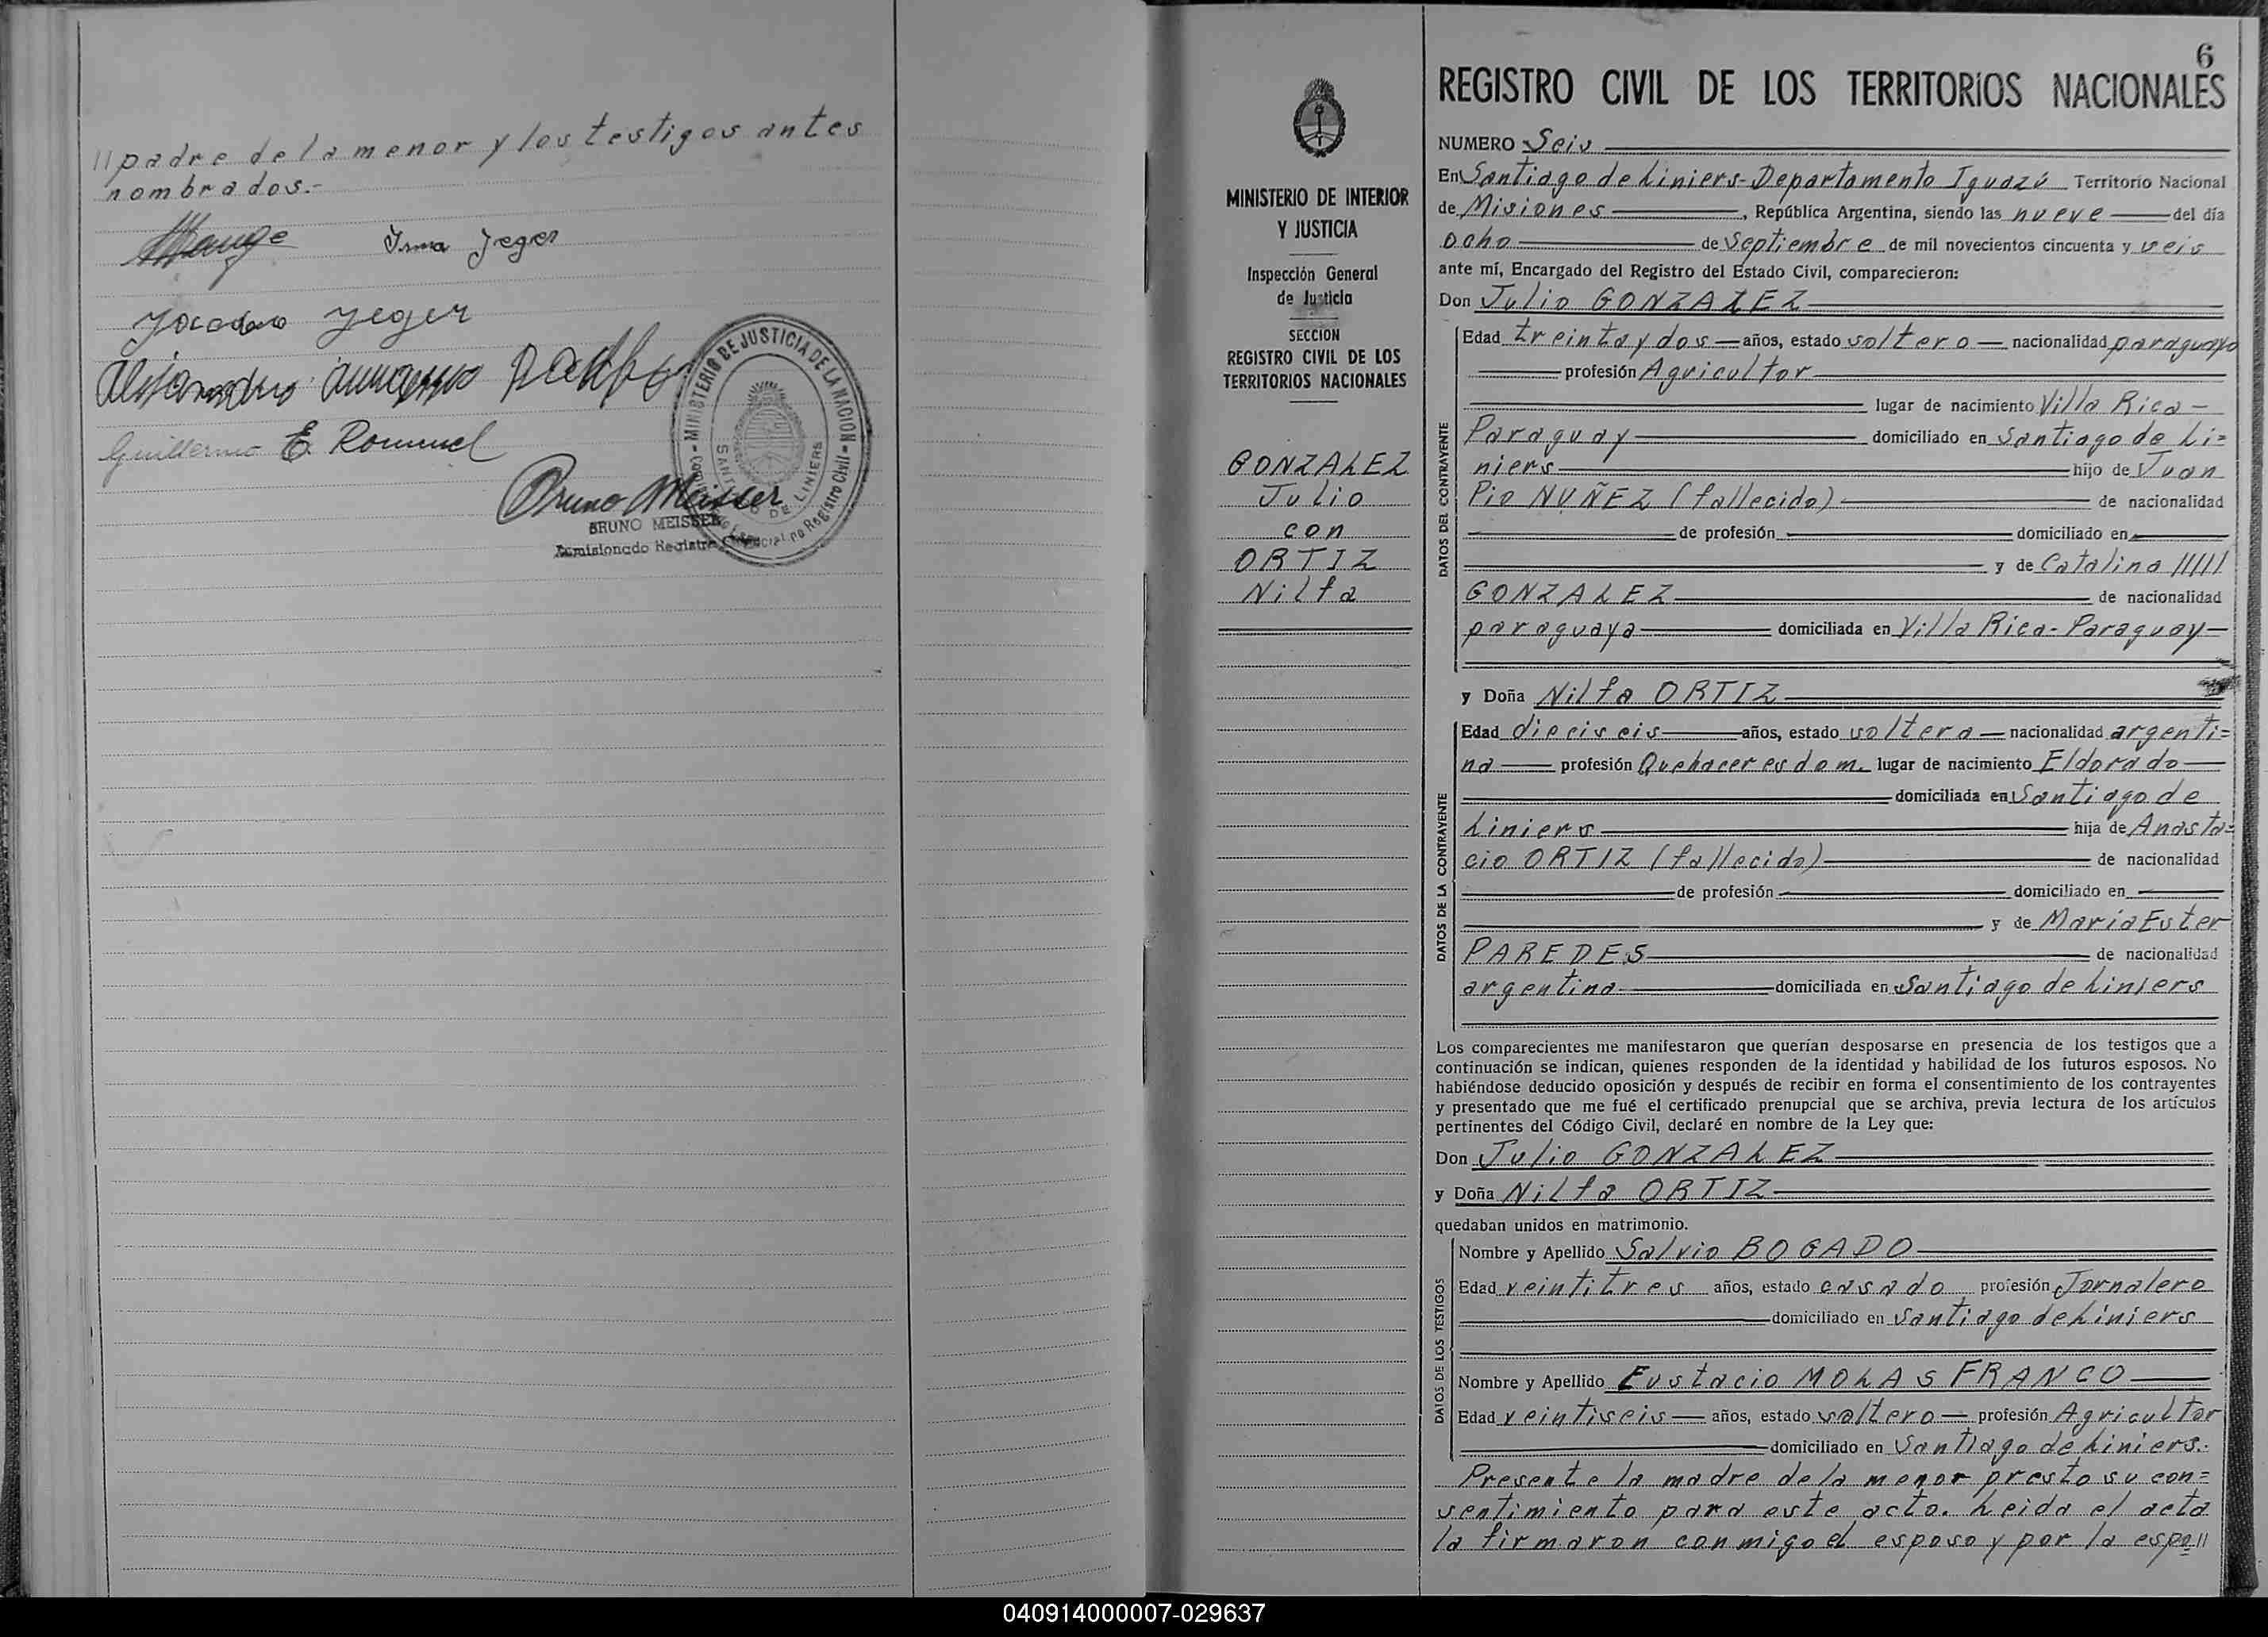 // padre de la menor y los testigos antes
nombrados.-
Irma Jeger
Jeger
Guillermo E. Rommel
Bruno Meisser
BRUNO MEISSER
Comisionado Registro
MINISTERIO DE JUSTICIA DE LA NACION
6
REGISTRO CIVIL DE LOS TERRITORIOS NACIONALES
NUMERO Seis
En Santiago de Liniers-Departamento Iguazú Territorio Nacional
de Misiones, República Argentina, siendo las nueve del día
ocho de Septiembre de mil novecientos cincuenta y seis
ante mí, Encargado del Registro del Estado Civil, comparecieron:
Don Julio GONZALEZ
Edad treinta y dos años, estado soltero nacionalidad paraguayo
profesión Agricultor
lugar de nacimiento Villa Rica-
Paraguay domiciliado en Santiago de Li=
niers hijo de Juan
Pio NUÑEZ (fallecido) de nacionalidad
de profesión domiciliado en
y de Catalina /////
GONZALEZ de nacionalidad
paraguaya domiciliada en Villa Rica-Paraguay-
DATOS DEL CONTRAYENTE
y Doña Nilfa ORTIZ
Edad dieciseis años, estado soltera nacionalidad argenti=
na profesión Quehaceres dom. lugar de nacimiento Eldorado
domiciliada en Santiago de
Liniers hija de Anasta=
cio ORTIZ (fallecido) de nacionalidad
de profesión domiciliado en
y de María Ester
PAREDES de nacionalidad
argentina domiciliada en Santiago de Liniers
DATOS DE LA CONTRAYENTE
Los comparecientes me manifestaron que querían desposarse en presencia de los testigos que a
continuación se indican, quienes responden de la identidad y habilidad de los futuros esposos. No
habiéndose deducido oposición y después de recibir en forma el consentimiento de los contrayentes
y presentado que me fué el certificado prenupcial que se archiva, previa lectura de los artículos
pertinentes del Código Civil, declaré en nombre de la Ley que:
Don Julio GONZALEZ
y Doña Nilfa ORTIZ
quedaban unidos en matrimonio.
Nombre y Apellido Salvio BOGADO
Edad veintitres años, estado casado profesión Jornalero
domiciliado en Santiago de Liniers
Nombre y Apellido Eustacio MOLAS FRANCO
Edad veintiseis años, estado soltero profesión Agricultor
domiciliado en Santiago de Liniers.-
DATOS DE LOS TESTIGOS
Presente la madre de la menor presto su con=
sentimiento para este acto. Leida el acta
la firmaron conmigo el esposo y por la espo//
MINISTERIO DE INTERIOR
Y JUSTICIA
Inspección General
de Justicia
SECCION
REGISTRO CIVIL DE LOS
TERRITORIOS NACIONALES
GONZALEZ
Julio
con
ORTIZ
Nilfa
040914000007-029637